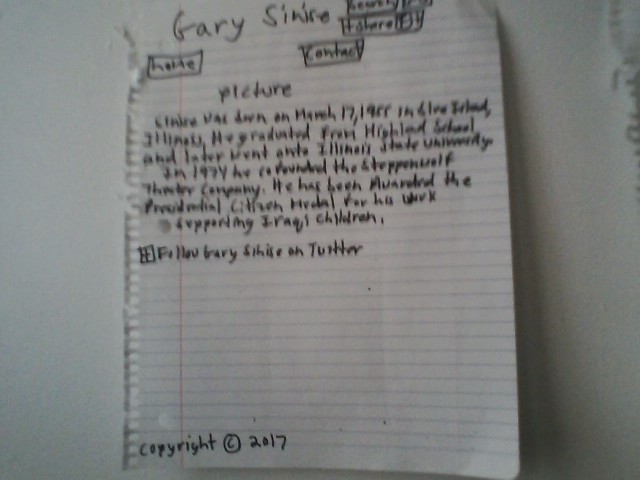 Gary Sinise
Search
Home
Contact
picture
Sinise was born on March 17, 1955 in
Illinois, He graduated from Highland School
and later went onto Illinois State University.
In 1974 he cofounded the Steppenwolf
Theater Company. He has been Awarded the
Presidential Citizen Medal for his work
supporting Iraqi Children.
Follow Gary Sinise on Twitter
copyright © 2017